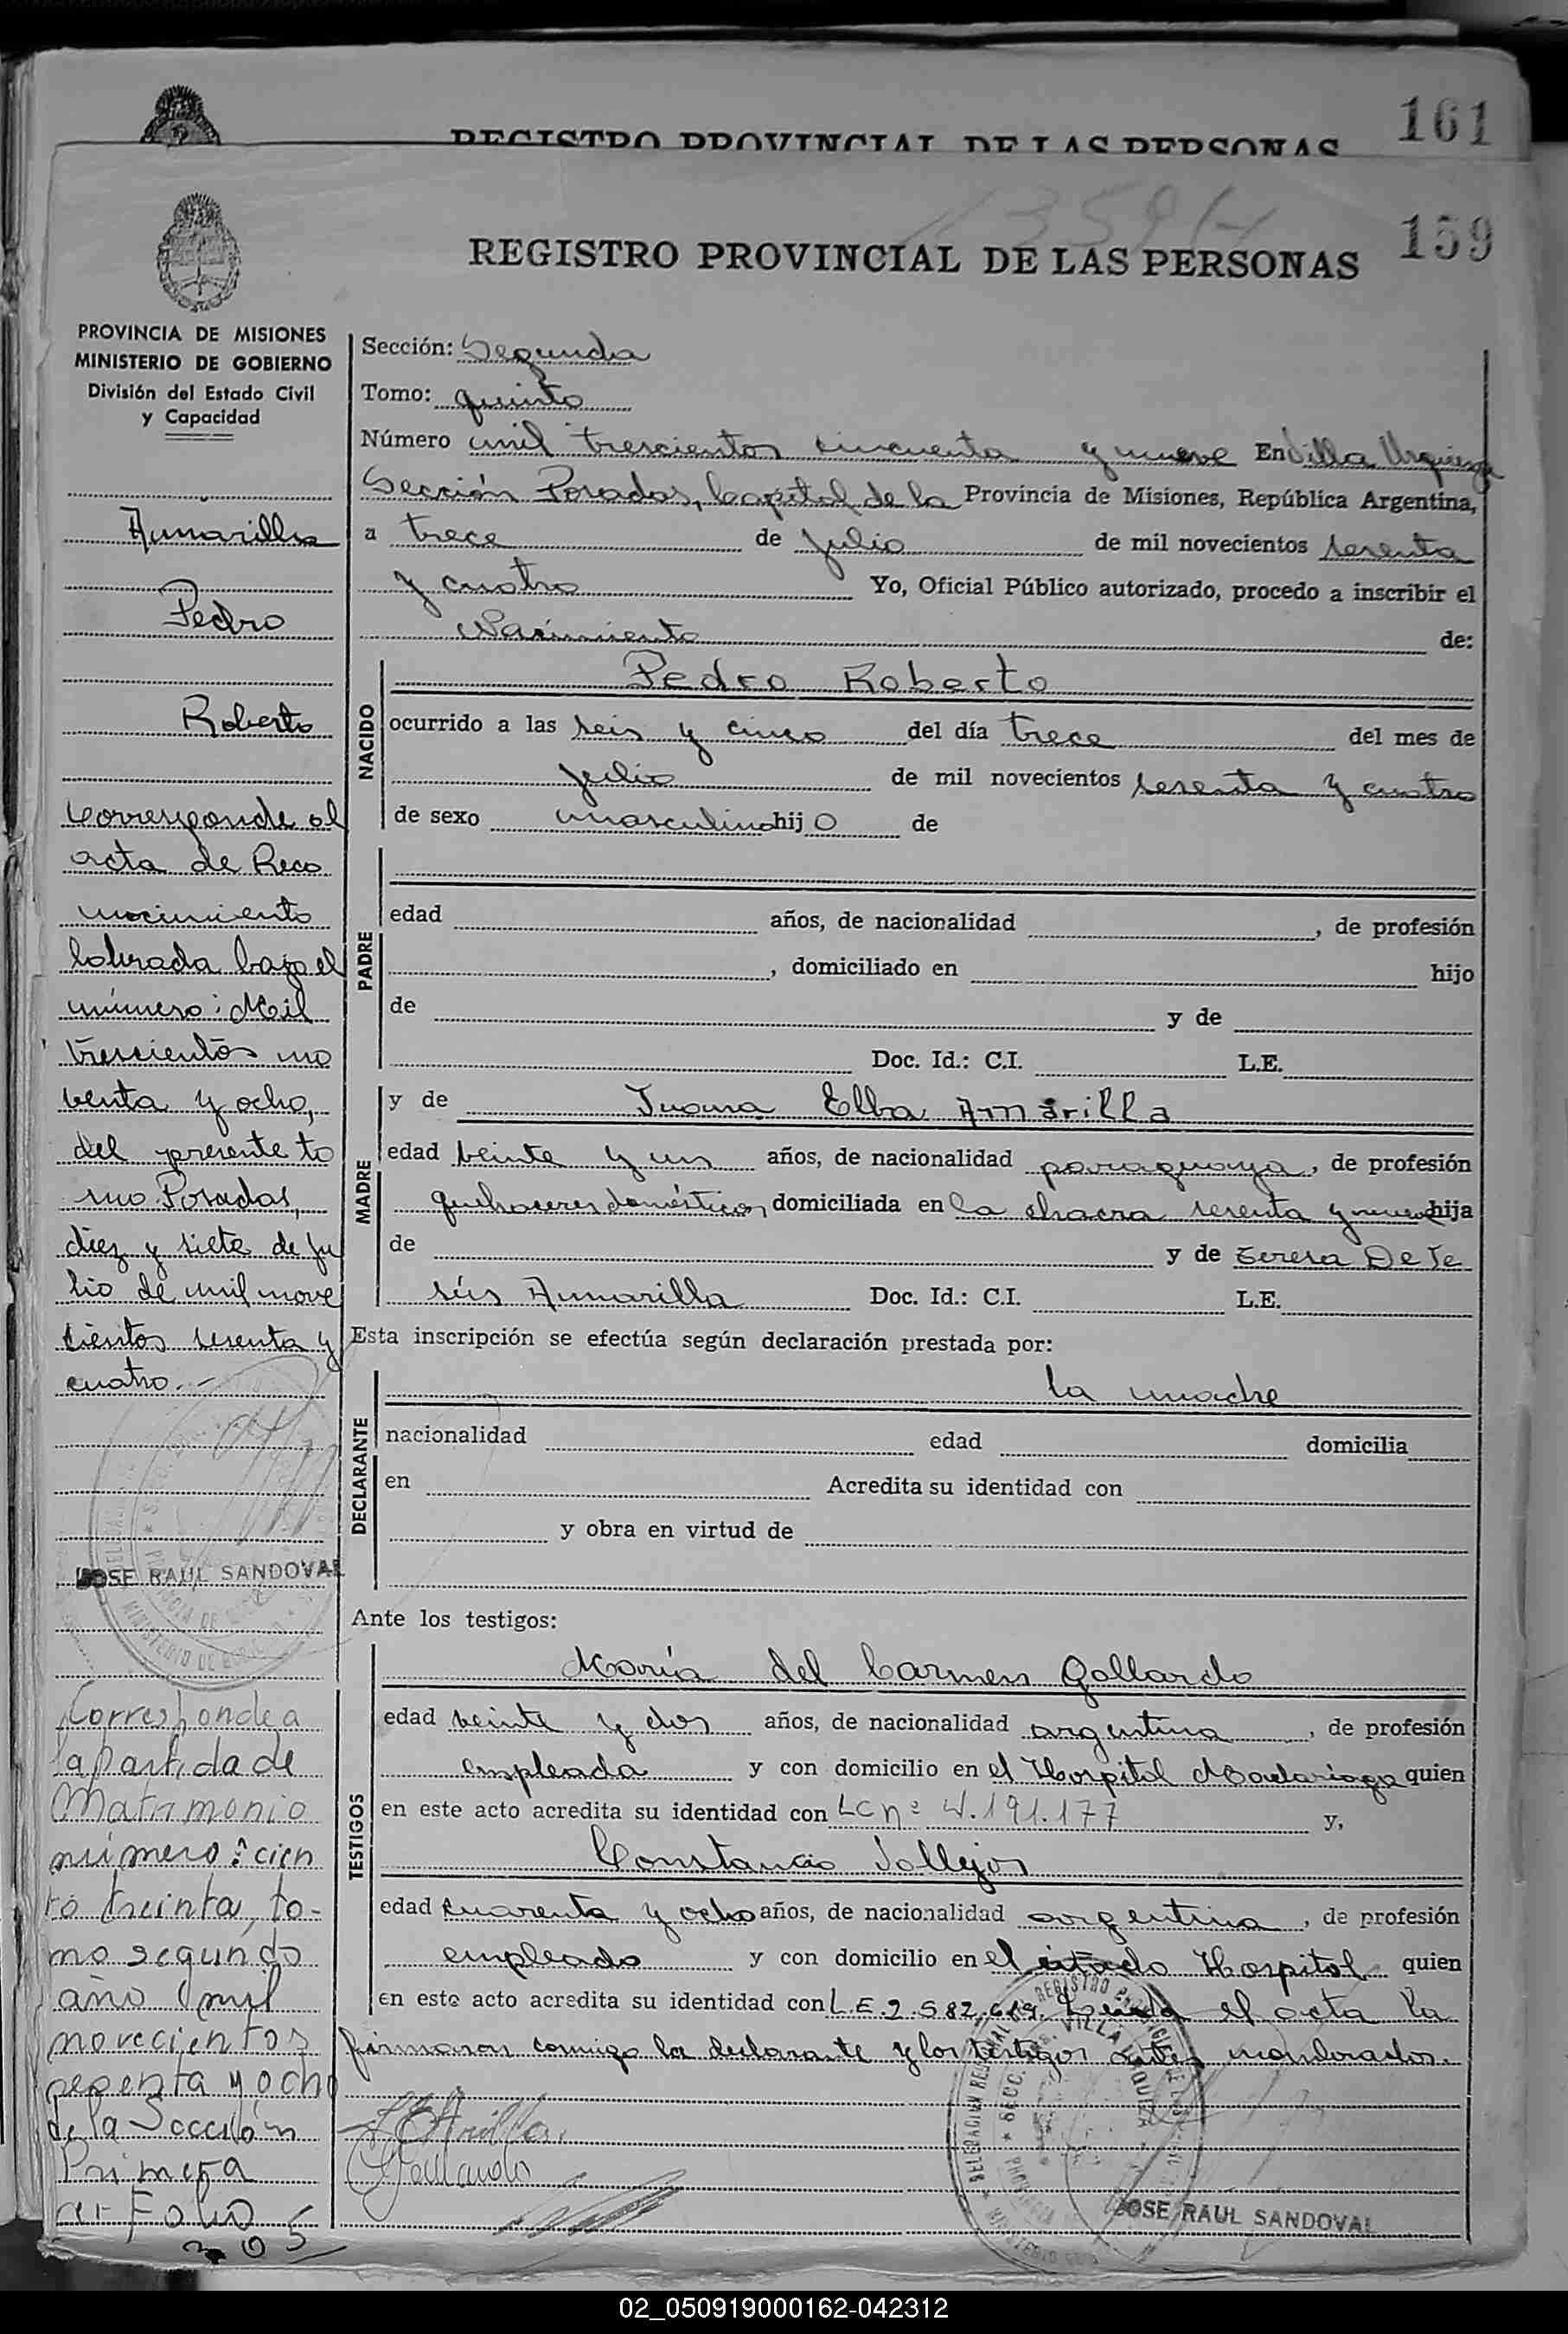 161
REGISTRO PROVINCIAL DE LAS PERSONAS
159
REGISTRO PROVINCIAL DE LAS PERSONAS
PROVINCIA DE MISIONES
MINISTERIO DE GOBIERNO
División del Estado Civil
y Capacidad
Amarilla
Pedro
Roberto
Corresponde al
acta de Reco
nocimiento
labrada bajo el
número: Mil
trescientos no
venta y ocho,
del presente to
mo Posadas,
diez y siete de ju
lio de mil nove
cientos sesenta y
cuatro.-
JOSE RAUL SANDOVAL
Corresponde a
la partida de
Matrimonio
número: cien
to treinta, to-
mo segundo
año mil
novecientos
sesenta y ocho
de la Sección
Primera
Folio
205
Sección: Segunda
Tomo: quinto
Número mil trescientos cincuenta y nueve En Villa Urquiza
Sección Posadas, Capital de la Provincia de Misiones, República Argentina,
a trece de julio de mil novecientos sesenta
y cuatro Yo, Oficial Público autorizado, procedo a inscribir el
Nacimiento de:
NACIDO
Pedro Roberto
ocurrido a las seis y cinco del día trece del mes de
julio de mil novecientos sesenta y cuatro
de sexo masculino hijo de
PADRE
edad años, de nacionalidad , de profesión
, domiciliado en hijo
de y de
Doc. Id.: C.I. L.E.
MADRE
y de Juana Elba Amarilla
edad veinte y un años, de nacionalidad paraguaya, de profesión
quehaceres domésticos, domiciliada en la chacra sesenta y nueve hija
de y de Teresa De Je
sús Amarilla Doc. Id.: C.I. L.E.
Esta inscripción se efectúa según declaración prestada por:
DECLARANTE
la madre
nacionalidad edad domicilia
en Acredita su identidad con
y obra en virtud de
Ante los testigos:
TESTIGOS
María del Carmen Gallardo
edad veinte y dos años, de nacionalidad argentina, de profesión
empleada y con domicilio en el Hospital Madariaga quien
en este acto acredita su identidad con LC nº 4.191.177 y,
Constancio Vallejos
edad cuarenta y ocho años, de nacionalidad argentina, de profesión
empleado y con domicilio en el citado Hospital quien
en este acto acredita su identidad con L.E. 2.582.619. Leída el acta la
firmaron conmigo la declarante y los testigos antes nombrados.
Gallardo
JOSE RAUL SANDOVAL
02_050919000162-042312